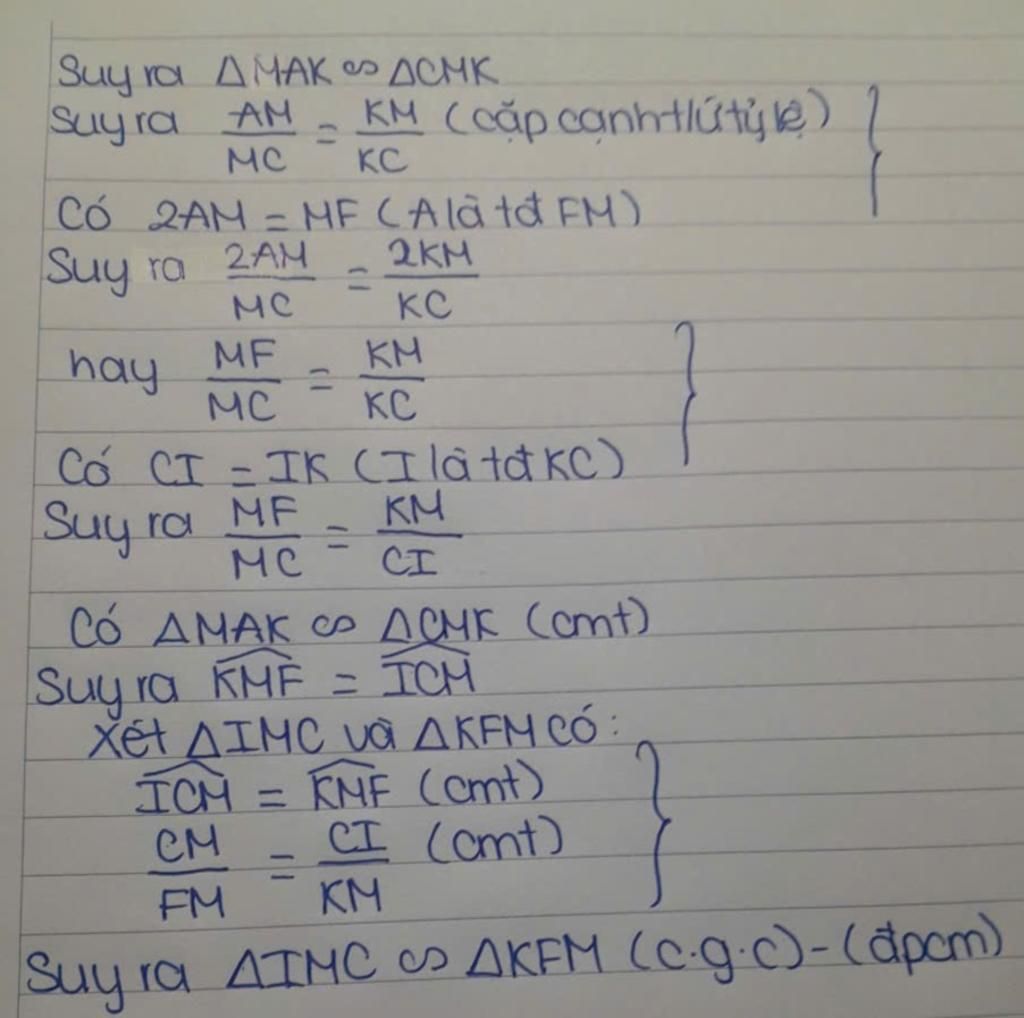 Suy ra ΔMAK ∽ ΔCMK
Suy ra AM/MC = KM/KC (cặp cạnh t/ứ tỷ lệ)
Có 2AM = MF (A là tđ FM)
Suy ra 2AM/MC = 2KM/KC
hay MF/MC = KM/KC
Có CI = IK (I là tđ KC)
Suy ra MF/MC = KM/CI
Có ΔMAK ∽ ΔCMK (cmt)
Suy ra \widehat{KMF} = \widehat{ICM}
Xét ΔIMC và ΔKFM có:
\widehat{ICM} = \widehat{KMF} (cmt)
CM/FM = CI/KM (cmt)
Suy ra ΔIMC ∽ ΔKFM (c.g.c) - (đpcm)